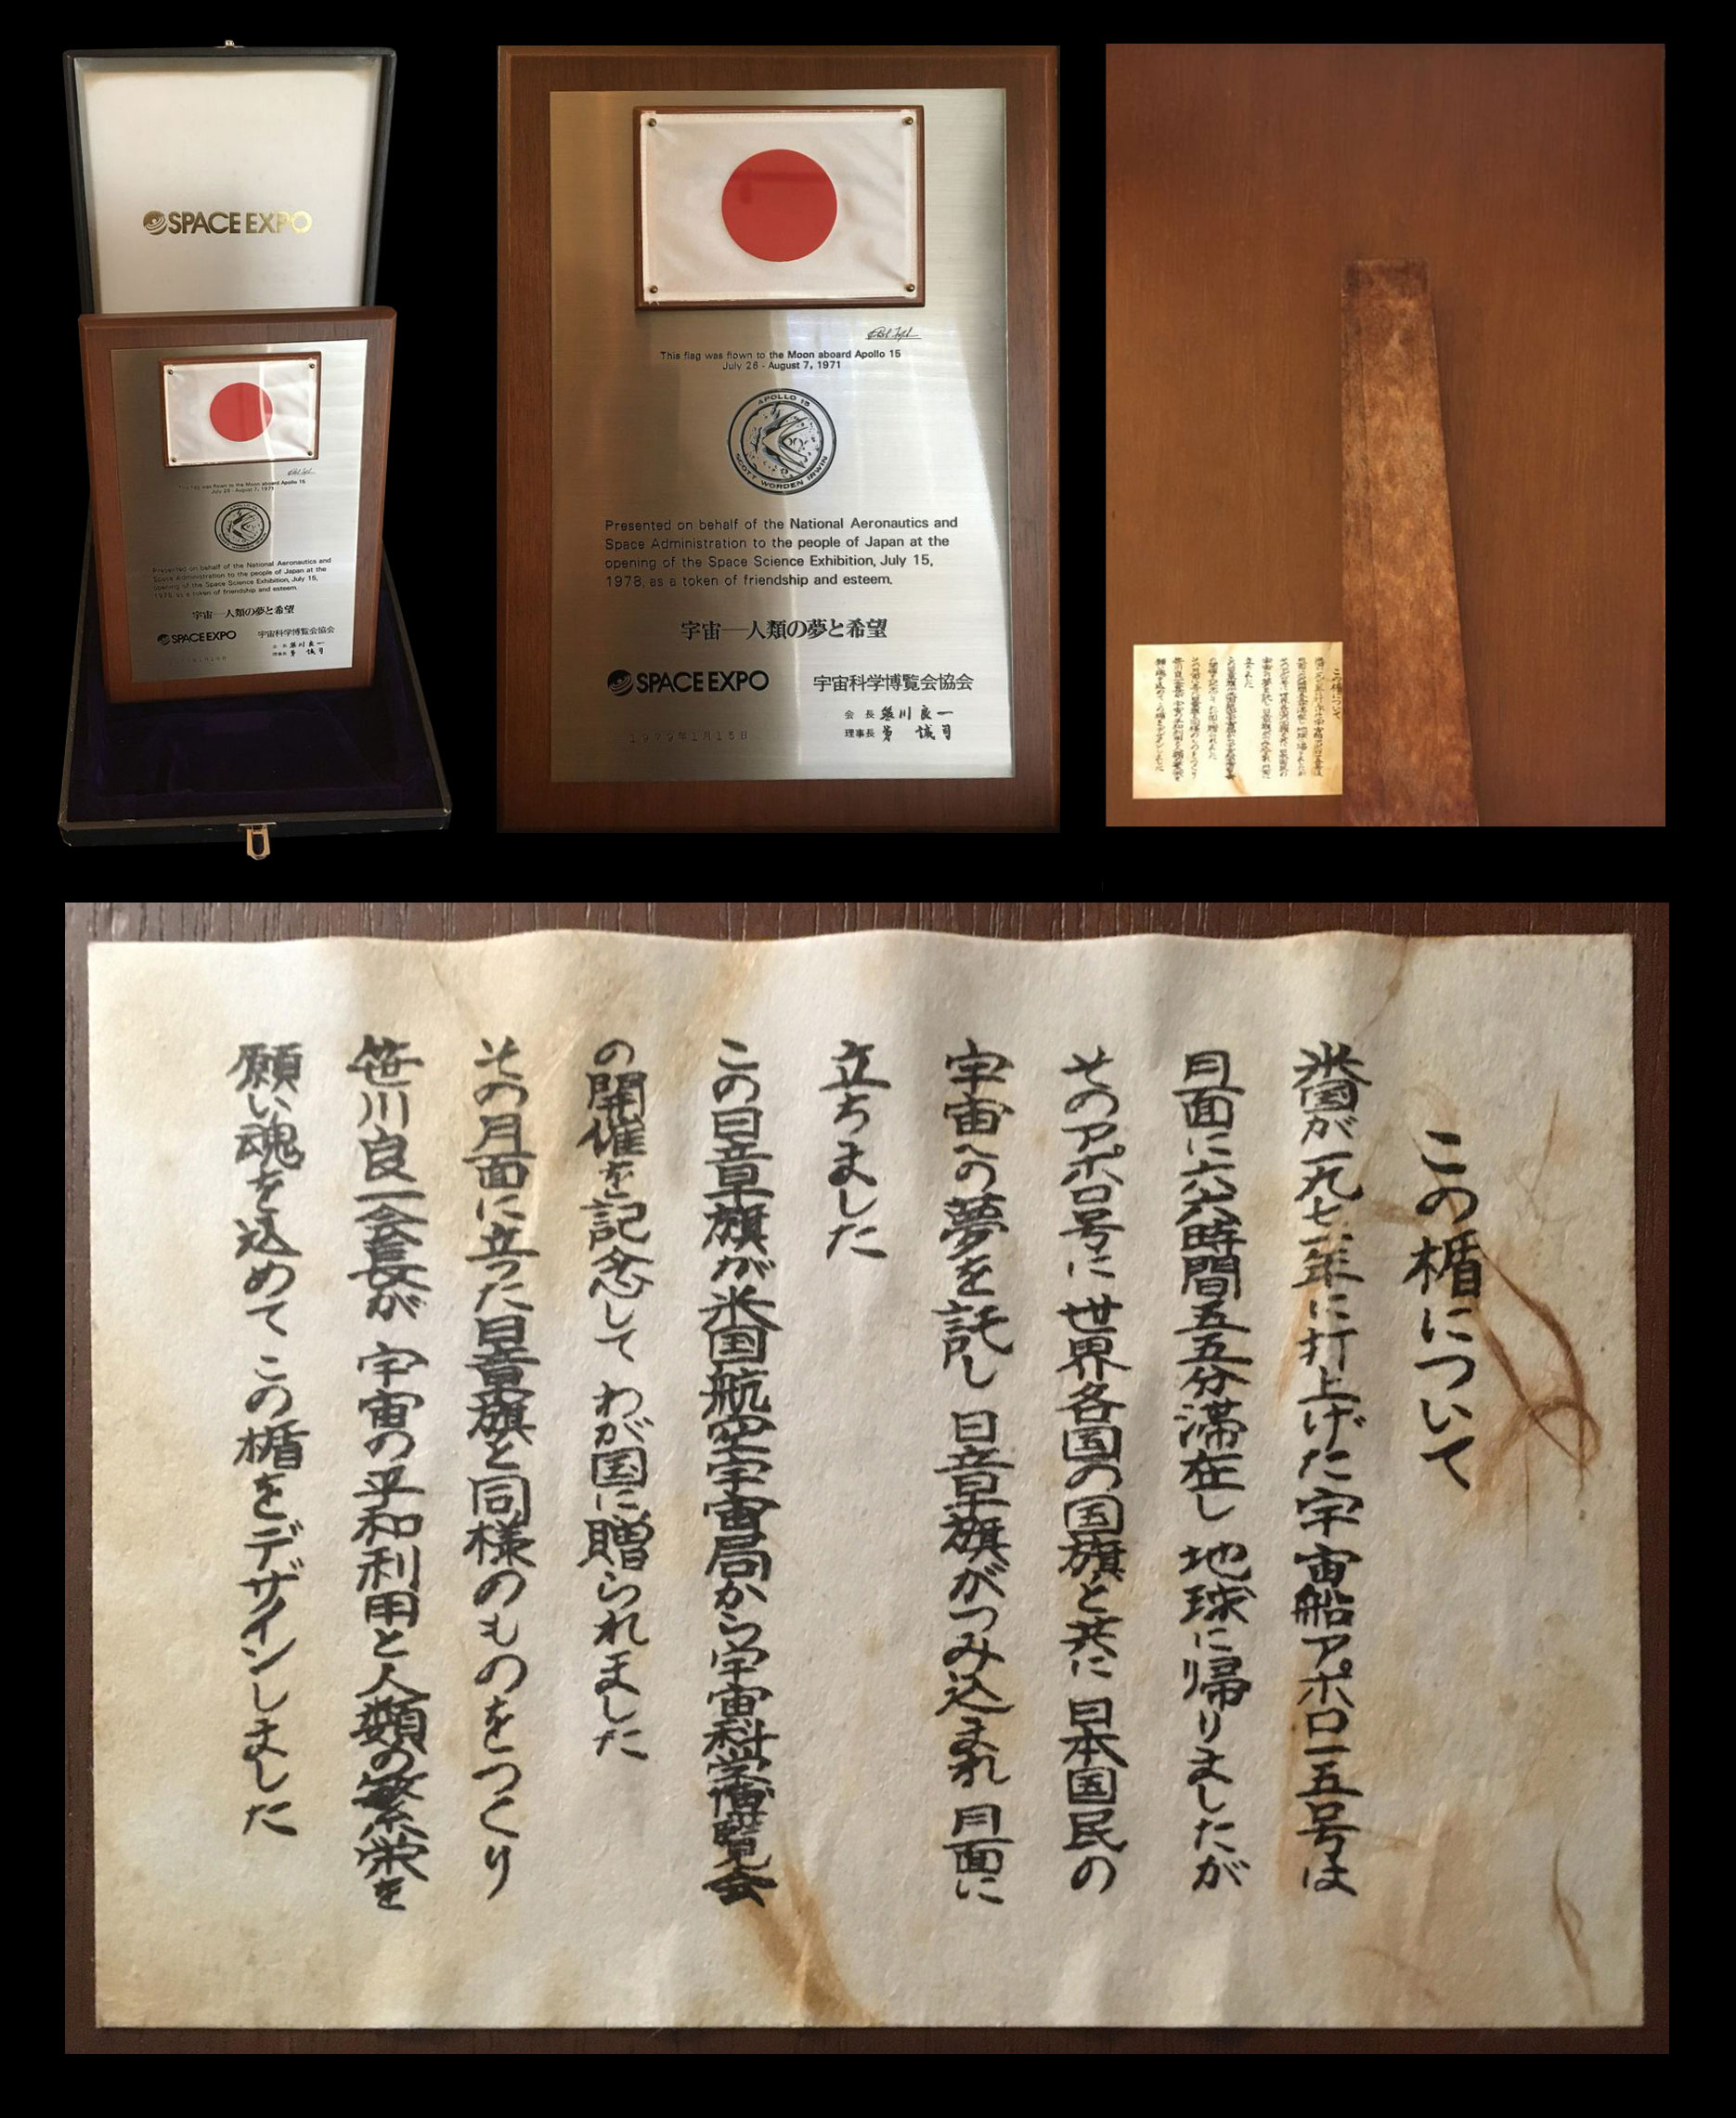 SPACE EXPO
This flag was flown to the Moon aboard Apollo 15
July 26 - August 7, 1971
APOLLO 15
SCOTT WORDEN IRWIN
Presented on behalf of the National Aeronautics and
Space Administration to the people of Japan at the
opening of the Space Science Exhibition, July 15,
1978, as a token of friendship and esteem.
宇宙―人類の夢と希望
SPACE EXPO 宇宙科学博覧会協会
会長 笹川良一
理事長 誠司
This flag was flown to the Moon aboard Apollo 15
July 26 - August 7, 1971
APOLLO 15
SCOTT WORDEN IRWIN
Presented on behalf of the National Aeronautics and
Space Administration to the people of Japan at the
opening of the Space Science Exhibition, July 15,
1978, as a token of friendship and esteem.
宇宙―人類の夢と希望
SPACE EXPO 宇宙科学博覧会協会
会長 笹川良一
理事長 誠司
1979年1月15日
この楯について
米国が一九七一年に打上げた宇宙船アポロ一五号は
月面に六六時間五五分滞在し 地球に帰りましたが
そのアポロ号に世界各国の国旗と共に 日本国民の
宇宙への夢を託し 日章旗がつみ込まれ 月面に
立ちました
この日章旗が米国航空宇宙局から宇宙科学博覧会
の開催を記念して わが国に贈られました
その月面に立った日章旗と同様のものをつくり
笹川良一会長が 宇宙の平和利用と人類の繁栄を
願い魂を込めて この楯をデザインしました